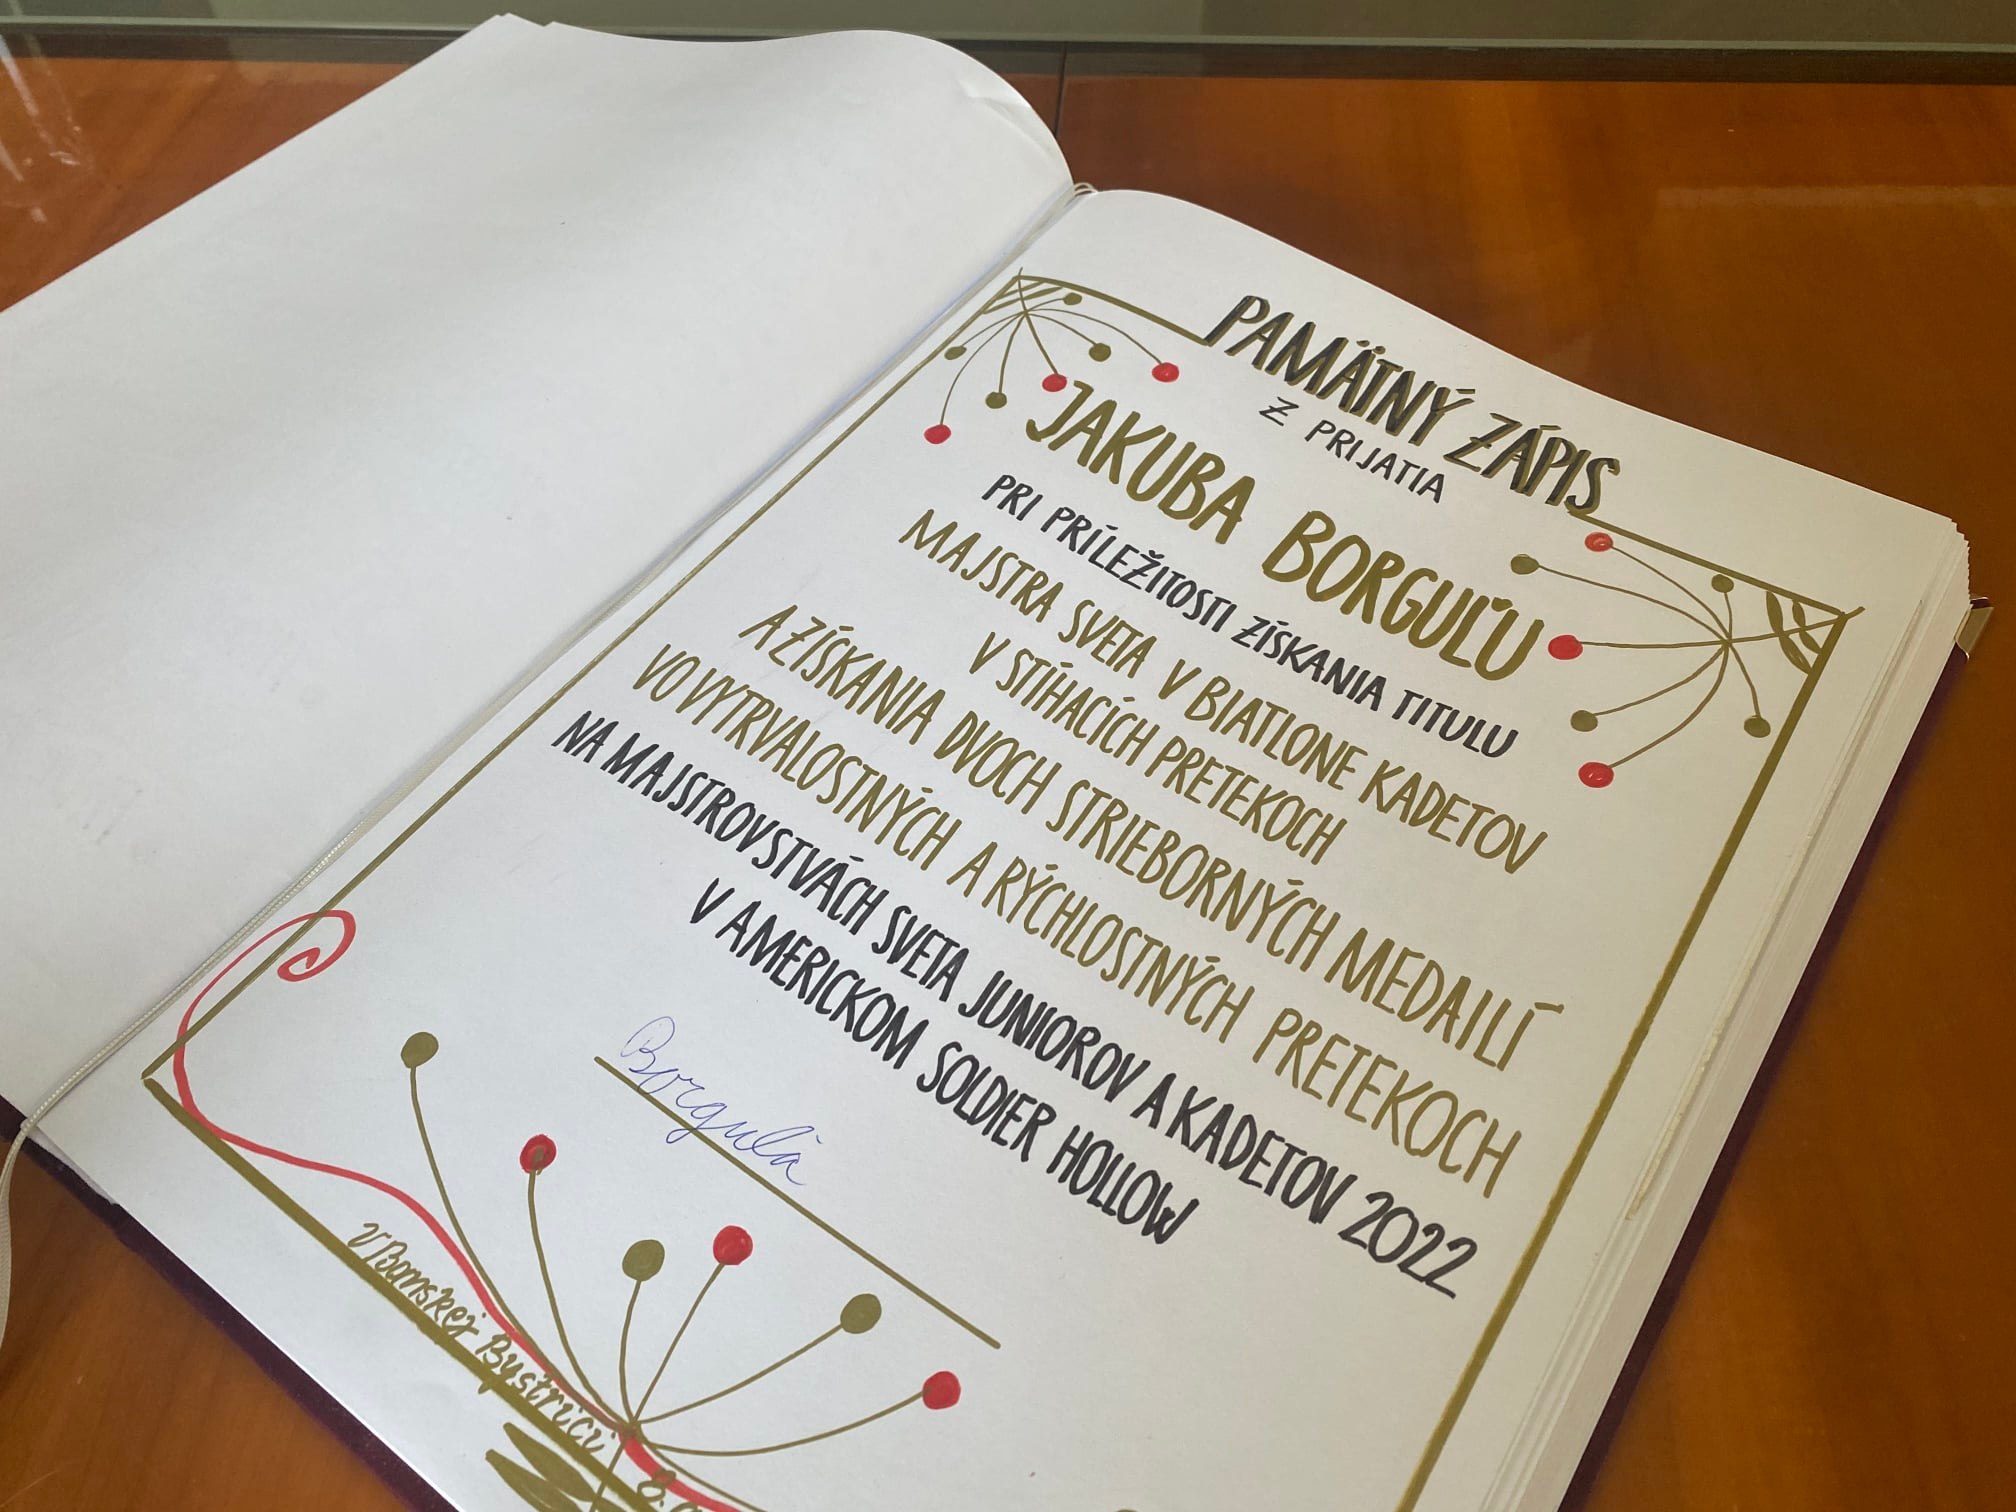 PAMÄTNÝ ZÁPIS
Z PRIJATIA
JAKUBA BORGUĽU
PRI PRÍLEŽITOSTI ZÍSKANIA TITULU
MAJSTRA SVETA V BIATLONE KADETOV
V STÍHACÍCH PRETEKOCH
A ZÍSKANIA DVOCH STRIEBORNÝCH MEDAILÍ
VO VYTRVALOSTNÝCH A RÝCHLOSTNÝCH PRETEKOCH
NA MAJSTROVSTVÁCH SVETA JUNIOROV A KADETOV 2022
V AMERICKOM SOLDIER HOLLOW
Borguľa
V Banskej Bystrici
8.